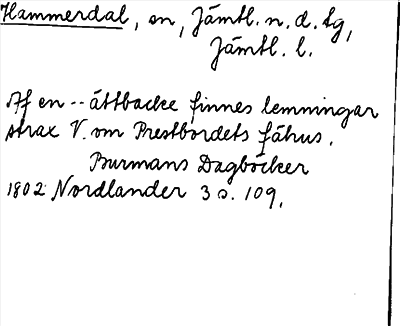 Hammerdal, sn, Jämtl. n. d. tg,
Jämtl. l.
Af en -- ättbacke finnes lemningar
strax V. om Prestbordets fähus.
Burmans Dagböcker
1802 Nordlander 3 s. 109.